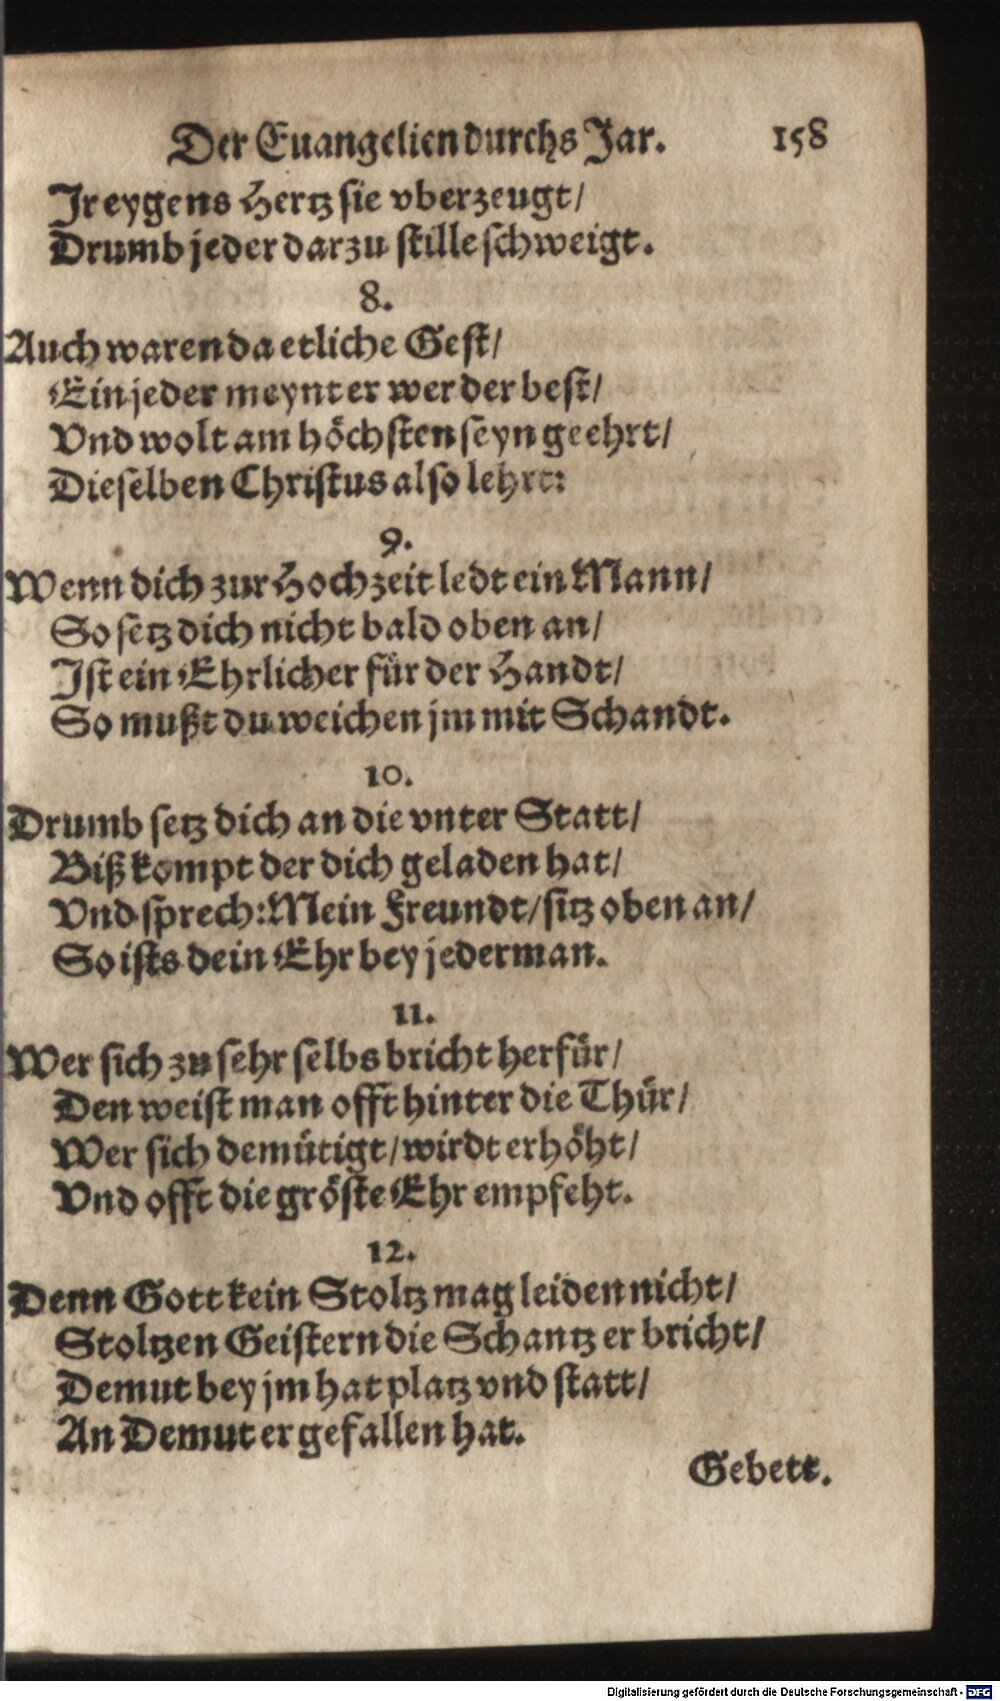 Der Euangelien durchs Jar. 158
Jr eygens Hertz sie vberzeugt/
Drumb jeder darzu stille schweigt.
8.
Auch waren da etliche Gest/
Ein jeder meynt er wer der best/
Vnd wolt am höchsten seyn geehrt/
Dieselben Christus also lehrt:
9.
Wenn dich zur Hochzeit ledt ein Mann/
So setz dich nicht bald oben an/
Jst ein Ehrlicher für der Handt/
So mußt du weichen jm mit Schandt.
10.
Drumb setz dich an die vnter Statt/
Biß kompt der dich geladen hat/
Vnd sprech: Mein Freundt/ sitz oben an/
So ists dein Ehr bey jederman.
11.
Wer sich zu sehr selbs bricht herfür/
Den weist man offt hinter die Thür/
Wer sich demütigt/ wirdt erhöht/
Vnd offt die gröste Ehr empfeht.
12.
Denn Gott kein Stoltz mag leiden nicht/
Stoltzen Geistern die Schantz er bricht/
Demut bey jm hat platz vnd statt/
An Demut er gefallen hat.
Gebett.
Digitalisierung gefördert durch die Deutsche Forschungsgemeinschaft - DFG